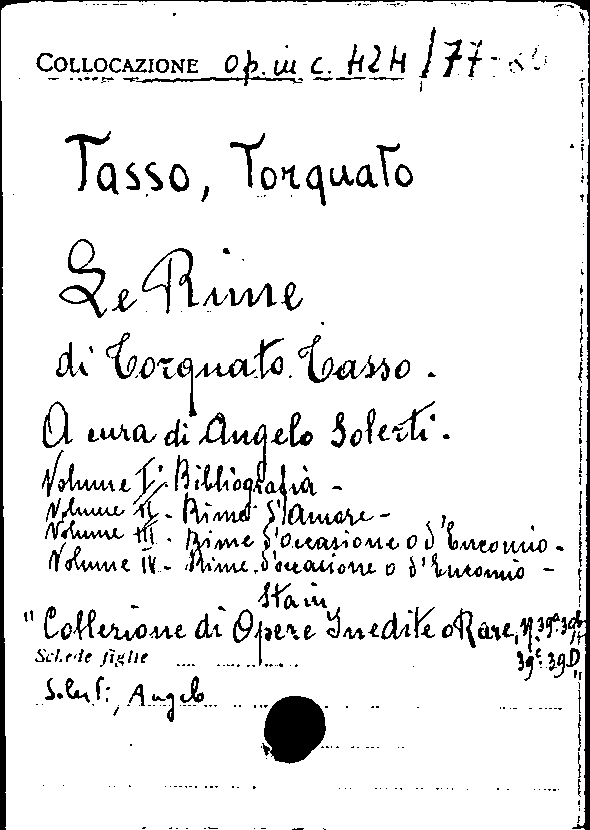 COLLOCAZIONE op. in c. 424/77-80
Tasso, Torquato
Le Rime
di Torquato Tasso.
A cura di Angelo Solerti.
Volume I: Bibliografia -
Volume II - Rime d'Amore -
Volume III - Rime d'occasione o d'Encomio -
Volume IV - Rime d'occasione o d'Encomio -
Sta in
"Collezione di Opere Inedite o Rare, N. 39ª 39b
Schede figlie 39c - 39D
Solerti, Angelo